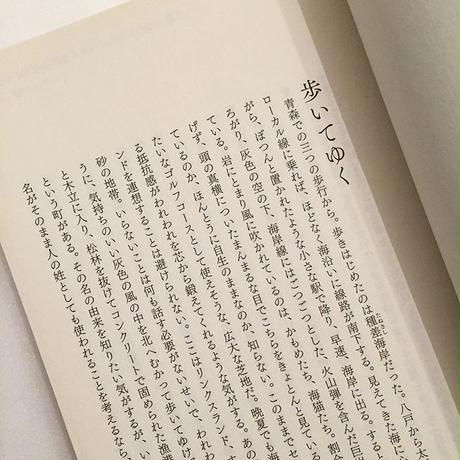 歩いてゆく
青森での三つの歩行から。歩きはじめたのは種差海岸だった。八戸から太
ローカル線に乗れば、ほどなく海沿いに線路が南下する。見えてきた海に
がら、ぽつんと置かれたような小さな駅で降り、早速、海岸に出る。すると
ろがり、灰色の空の下、海岸線にはごつごつとした、火山弾を含んだ巨岩
ている。岩にとまり風に吹かれているのは、かもめたち、海猫たち。割合
げず、頭の真横についたまんまるな目でこちらをきょとんと見ている
ているのか、ほんとうに自生のままなのか、知らない。このままでセ
たいなゴルフコースとして使えそうな、広大な芝地だ。晩夏でも海
る抵抗感がわれわれを芯から鍛えてくれるような気がする。あの
ンドを連想することは避けられない。ここはリンクスランド、す
砂の地帯。いらないことは何も話す必要がないせいで、われわ
うに、気持ちのいい灰色の風の中を北へむかって歩いてゆけ
と木立に入り、松林を抜けてコンクリートで固められた漁港
という町がある。その名の由来を知りたい気がするが、い
名がそのまま人の姓としても使われることを考えるなら